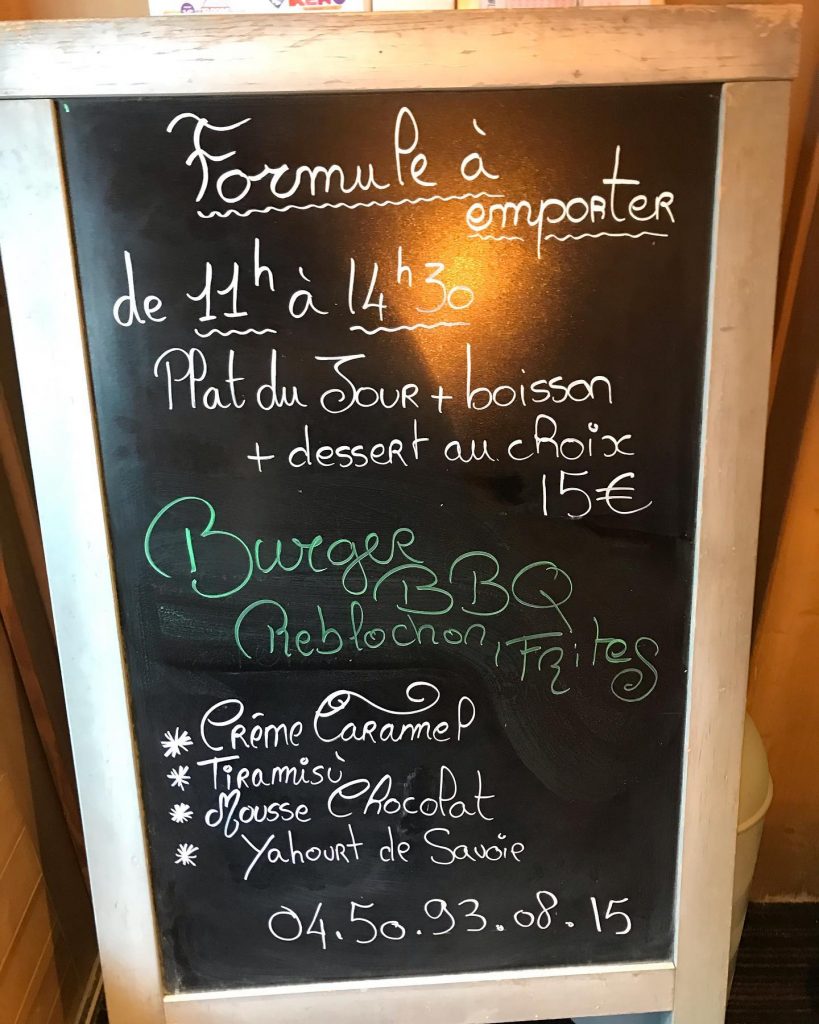 Formule à
emporter
de 11h à 14h30
Plat du Jour + boisson
+ dessert au choix
15€
Burger
BBQ
Reblochon, Frites
* Crème Caramel
* Tiramisù
* Mousse Chocolat
* Yahourt de Savoie
04.50.93.08.15